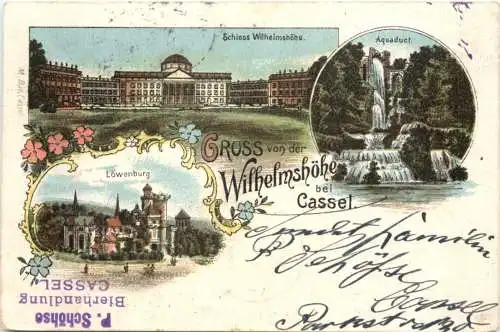 Schloss Wilhelmshöhe.
Aquaduct.
GRUSS von der
Wilhelmshöhe
bei
Cassel.
Löwenburg
P. Schöhse
Bierhandlung
CASSEL
Familie
P. Schöhse
Cassel